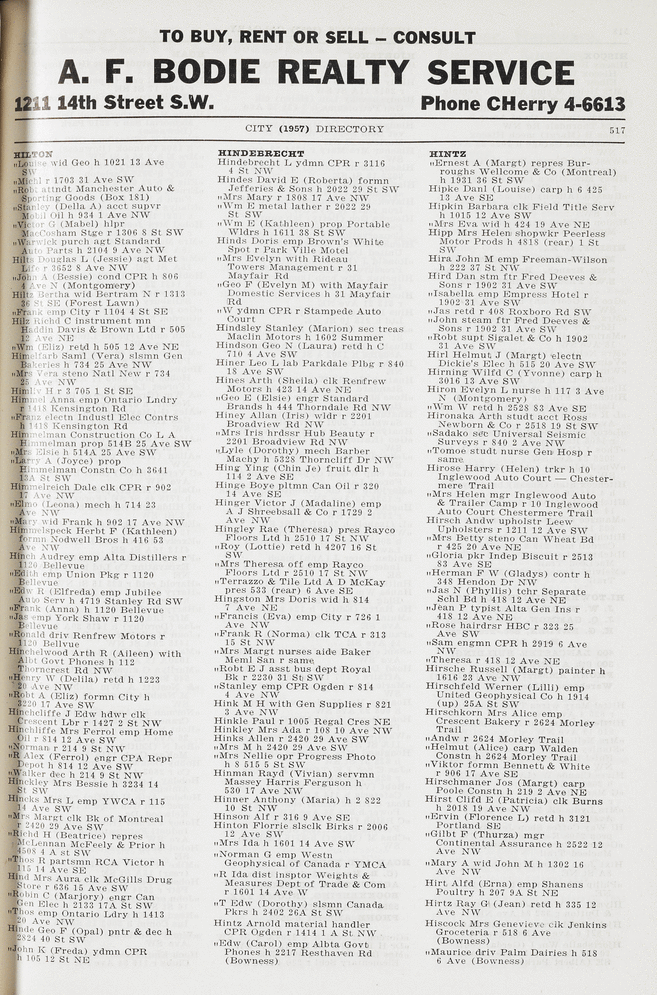 TO BUY, RENT OR SELL – CONSULT
A. F. BODIE REALTY SERVICE
1211 14th Street S.W. Phone CHerry 4-6613
CITY (1957) DIRECTORY 517
HILTON
"Louise wid Geo h 1021 13 Ave
SW
"Michl r 1703 31 Ave SW
"Robt attndt Manchester Auto &
Sporting Goods (Box 181)
"Stanley (Della A) acct supvr
Mobil Oil h 934 1 Ave NW
"Victor G (Mabel) hlpr
MacCosham Stge r 1306 8 St SW
"Warwick purch agt Standard
Auto Parts h 2104 9 Ave NW
Hilts Douglas L (Jessie) agt Met
Life r 3652 8 Ave NW
"John A (Bessie) cond CPR h 806
4 Ave N (Montgomery)
Hiltz Bertha wid Bertram N r 1313
36 St SE (Forest Lawn)
"Frank emp City r 1104 4 St SE
Hilz Richd C instrument mn
Haddin Davis & Brown Ltd r 505
12 Ave NE
"Wm (Eliz) retd h 505 12 Ave NE
Himelfarb Saml (Vera) slsmn Gen
Bakeries h 734 25 Ave NW
"Mrs Vera steno Natl New r 734
25 Ave NW
Himlly H r 3 705 1 St SE
Himmel Anna emp Ontario Lndry
r 1418 Kensington Rd
"Franz electn Indust Elec Contrs
h 1418 Kensington Rd
Himmelman Construction Co L A
Himmelman prop 514B 25 Ave SW
"Mrs Elsie h 514A 25 Ave SW
"Larry A (Joyce) prop
Himmelman Constn Co h 3641
13A St SW
Himmelreich Dale clk CPR r 902
17 Ave NW
"Elmo (Leona) mech h 714 23
Ave NW
"Mary wid Frank h 902 17 Ave NW
Himmelspeck Herbt F (Kathleen)
formn Nodwell Bros h 416 53
Ave NW
Hinch Audrey emp Alta Distillers r
1120 Bellevue
"Edith emp Union Pkg r 1120
Bellevue
"Edw R (Elfreda) emp Jubilee
Auto Serv h 4719 Stanley Rd SW
"Frank (Anna) h 1120 Bellevue
"Jas emp York Shaw r 1120
Bellevue
"Ronald driv Renfrew Motors r
1120 Bellevue
Hinchelwood Arth R (Aileen) with
Albt Govt Phones h 112
Thorncrest Rd NW
"Henry W (Delila) retd h 1223
20 Ave NW
"Robt A (Eliz) formn City h
3220 17 Ave SW
Hinchcliffe J Edw hdwr clk
Crescent Lbr r 1427 2 St NW
Hinchliffe Mrs Ferrol emp Home
Oil r 814 12 Ave SW
"Norman r 214 9 St NW
"R Alex (Ferrol) engr CPA Repr
Depot h 814 12 Ave SW
"Walker dec h 214 9 St NW
Hinckley Mrs Bessie h 3234 14
St SW
Hincks Mrs L emp YWCA r 115
14 Ave SE
"Mrs Margt clk Bk of Montreal
r 2420 29 Ave SW
"Richd H (Beatrice) repres
McLennan McFeely & Prior h
4508 4 A st SW
"Thos R partsmn RCA Victor h
115 14 Ave SE
Hind Mrs Aura clk McGills Drug
Store r 636 15 Ave SW
"Robin C (Marjory) engr Can
Gen Elec h 2133 17A St SW
"Thos emp Ontario Ldry h 1413
20 Ave NW
Hinde Geo F (Opal) pntr & dec h
2824 40 St SW
"John K (Freda) ydmn CPR
h 105 12 St NE
HINDEBRECHT
Hindebrecht L ydmn CPR r 3116
4 St NW
Hindes David E (Roberta) formn
Jefferies & Sons h 2022 29 St SW
"Mrs Mary r 1808 17 Ave NW
"Wm E metal lather r 2022 29
St SW
"Wm E (Kathleen) prop Portable
Wldrs h 1611 38 St SW
Hinds Doris emp Brown's White
Spot r Park Ville Motel
"Mrs Evelyn with Rideau
Towers Management r 31
Mayfair
"Geo F (Evelyn M) with Mayfair
Domestic Services h 31 Mayfair
Rd
"W ydmn CPR r Stampede Auto
Court
Hindsley Stanley (Marion) sec treas
Maclin Motors h 1602 Summer
Hindson Geo N (Laura) retd h C
710 4 Ave SW
Hiner Leo L lab Parkdale Plbg r 840
18 Ave SW
Hines Arth (Sheila) clk Renfrew
Motors h 423 14 Ave NE
"Geo E (Elsie) engr Standard
Brands h 444 Thorndale Rd NW
Hiney Allan (Iris) wldr r 2201
Broadview Rd NW
"Mrs Iris hrdssr Hub Beauty r
2201 Broadview Rd NW
"Lyle (Dorothy) mech Barber
Machy h 5328 Thorncliff Dr NW
Hing Ying (Chin Je) fruit dlr h
114 2 Ave SE
Hinge Boye pltmn Can Oil r 320
14 Ave SE
Hinger Victor J (Madaline) emp
A J Shreebsall & Co r 1729 2
Ave NW
Hingley Rae (Theresa) pres Rayco
Floors Ltd h 2510 17 St NW
"Roy (Lottie) retd h 4207 16 St
SW
"Mrs Theresa off emp Rayco
Floors Ltd r 2510 17 St NW
"Terrazzo & Tile Ltd A D McKay
pres 533 (rear) 6 Ave SE
Hingston Mrs Doris wid h 814
7 Ave NE
"Francis (Eva) emp City r 726 1
Ave NW
"Frank R (Norma) clk TCA r 313
15 St NW
"Mrs Margt nurses aide Baker
Meml San r same
"Robt E J asst bus dept Royal
Bk r 2230 31 St SW
"Stanley emp CPR Ogden r 814
4 Ave NW
Hink M H with Gen Supplies r 821
3 Ave NW
Hinkle Paul r 1005 Regal Cres NE
Hinkley Mrs Ada r 108 10 Ave NW
Hinks Allen r 2420 29 Ave SW
"Mrs M h 2420 29 Ave SW
"Mrs Nellie opr Progress Photo
h 8 515 5 St SW
Hinman Rayd (Vivian) servmn
Massey Harris Ferguson h
530 17 Ave NW
Hinner Anthony (Maria) h 2 822
10 St NW
Hinson Alf r 316 9 Ave SE
Hinton Florrie slsclk Birks r 2006
12 Ave SW
"Mrs Ida h 1601 14 Ave SW
"Norman G emp Westn
Geophysical of Canada r YMCA
"R Ida dist insptor Weights &
Measures Dept of Trade & Com
r 1601 14 Ave W
"T Edw (Dorothy) slsmn Canada
Pkrs h 2402 26A St SW
Hintz Arnold material handler
CPR Ogden r 1414 1 A St NW
"Edw (Carol) emp Albta Govt
Phones h 2217 Resthaven Rd
(Bowness)
HINTZ
"Ernest A (Margt) repres Bur-
roughs Wellcome & Co (Montreal)
h 1931 36 St SW
Hipke Danl (Louise) carp h 6 425
13 Ave SE
Hipkin Barbara clk Field Title Serv
h 1015 12 Ave SW
"Mrs Eva wid h 424 19 Ave NE
Hipp Mrs Helen shopwkr Peerless
Motor Prods h 4818 (rear) 1 St
SW
Hira John M emp Freeman-Wilson
h 222 37 St NW
Hird Dan stm ftr Fred Deeves &
Sons r 1902 31 Ave SW
"Isabella emp Empress Hotel r
1902 31 Ave SW
"Jas retd r 408 Roxboro Rd SW
"John steam ftr Fred Deeves &
Sons r 1902 31 Ave SW
"Robt supt Sigalet & Co h 1902
31 Ave SW
Hirl Helmut J (Margt) electn
Dickie's Elec h 515 20 Ave SW
Hirning Wilfd C (Yvonne) carp h
3016 13 Ave SW
Hiron Evelyn L nurse h 117 3 Ave
N (Montgomery)
"Wm W retd h 2528 83 Ave SE
Hironaka Arth studt acct Ross
Newborn & Co r 2518 19 St SW
"Sadako sec Universal Seismic
Surveys r 840 2 Ave NW
"Tomoe studt nurse Gen Hosp r
same
Hirose Harry (Helen) trkr h 10
Inglewood Auto Court — Chester-
mere Trail
"Mrs Helen mgr Inglewood Auto
& Trailer Camp r 10 Inglewood
Auto Court Chestermere Trail
Hirsch Andw upholstr Leew
Upholsters r 1211 12 Ave SW
"Mrs Betty steno Can Wheat Bd
r 425 20 Ave NE
"Gloria pkr Indep Biscuit r 2513
83 Ave SE
"Herman F W (Gladys) contr h
348 Hendon Dr NW
"Jas N (Phyllis) tchr Separate
Schl Bd h 418 12 Ave NE
"Jean P typist Alta Gen Ins r
418 12 Ave NE
"Rose hairdrsr HBC r 323 25
Ave SW
"Sam engmn CPR h 2919 6 Ave
NW
"Theresa r 418 12 Ave NE
Hirsche Russell (Margt) painter h
1616 23 Ave NW
Hirschfeld Werner (Lilli) emp
United Geophysical Co h 1914
(up) 25A St SW
Hirschkorn Mrs Alice emp
Crescent Bakery r 2624 Morley
Trail
"Andw r 2624 Morley Trail
"Helmut (Alice) carp Walden
Constn h 2624 Morley Trail
"Viktor formn Bennett & White
r 906 17 Ave SE
Hirschmaner Jos (Margt) carp
Poole Constn h 219 2 Ave NE
Hirst Clifd E (Patricia) clk Burns
h 2018 19 Ave NW
"Ervin (Florence L) retd h 3121
Portland SE
"Gilbt F (Thurza) mgr
Continental Assurance h 2522 12
Ave NW
"Mary A wid John M h 1302 16
Ave NW
Hirt Alfd (Erna) emp Shanens
Poultry h 207 9A St NE
Hirtz Ray G (Jean) retd h 335 12
Ave NW
Hiscock Mrs Genevieve clk Jenkins
Groceteria r 518 6 Ave
(Bowness)
"Maurice driv Palm Dairies h 518
6 Ave (Bowness)